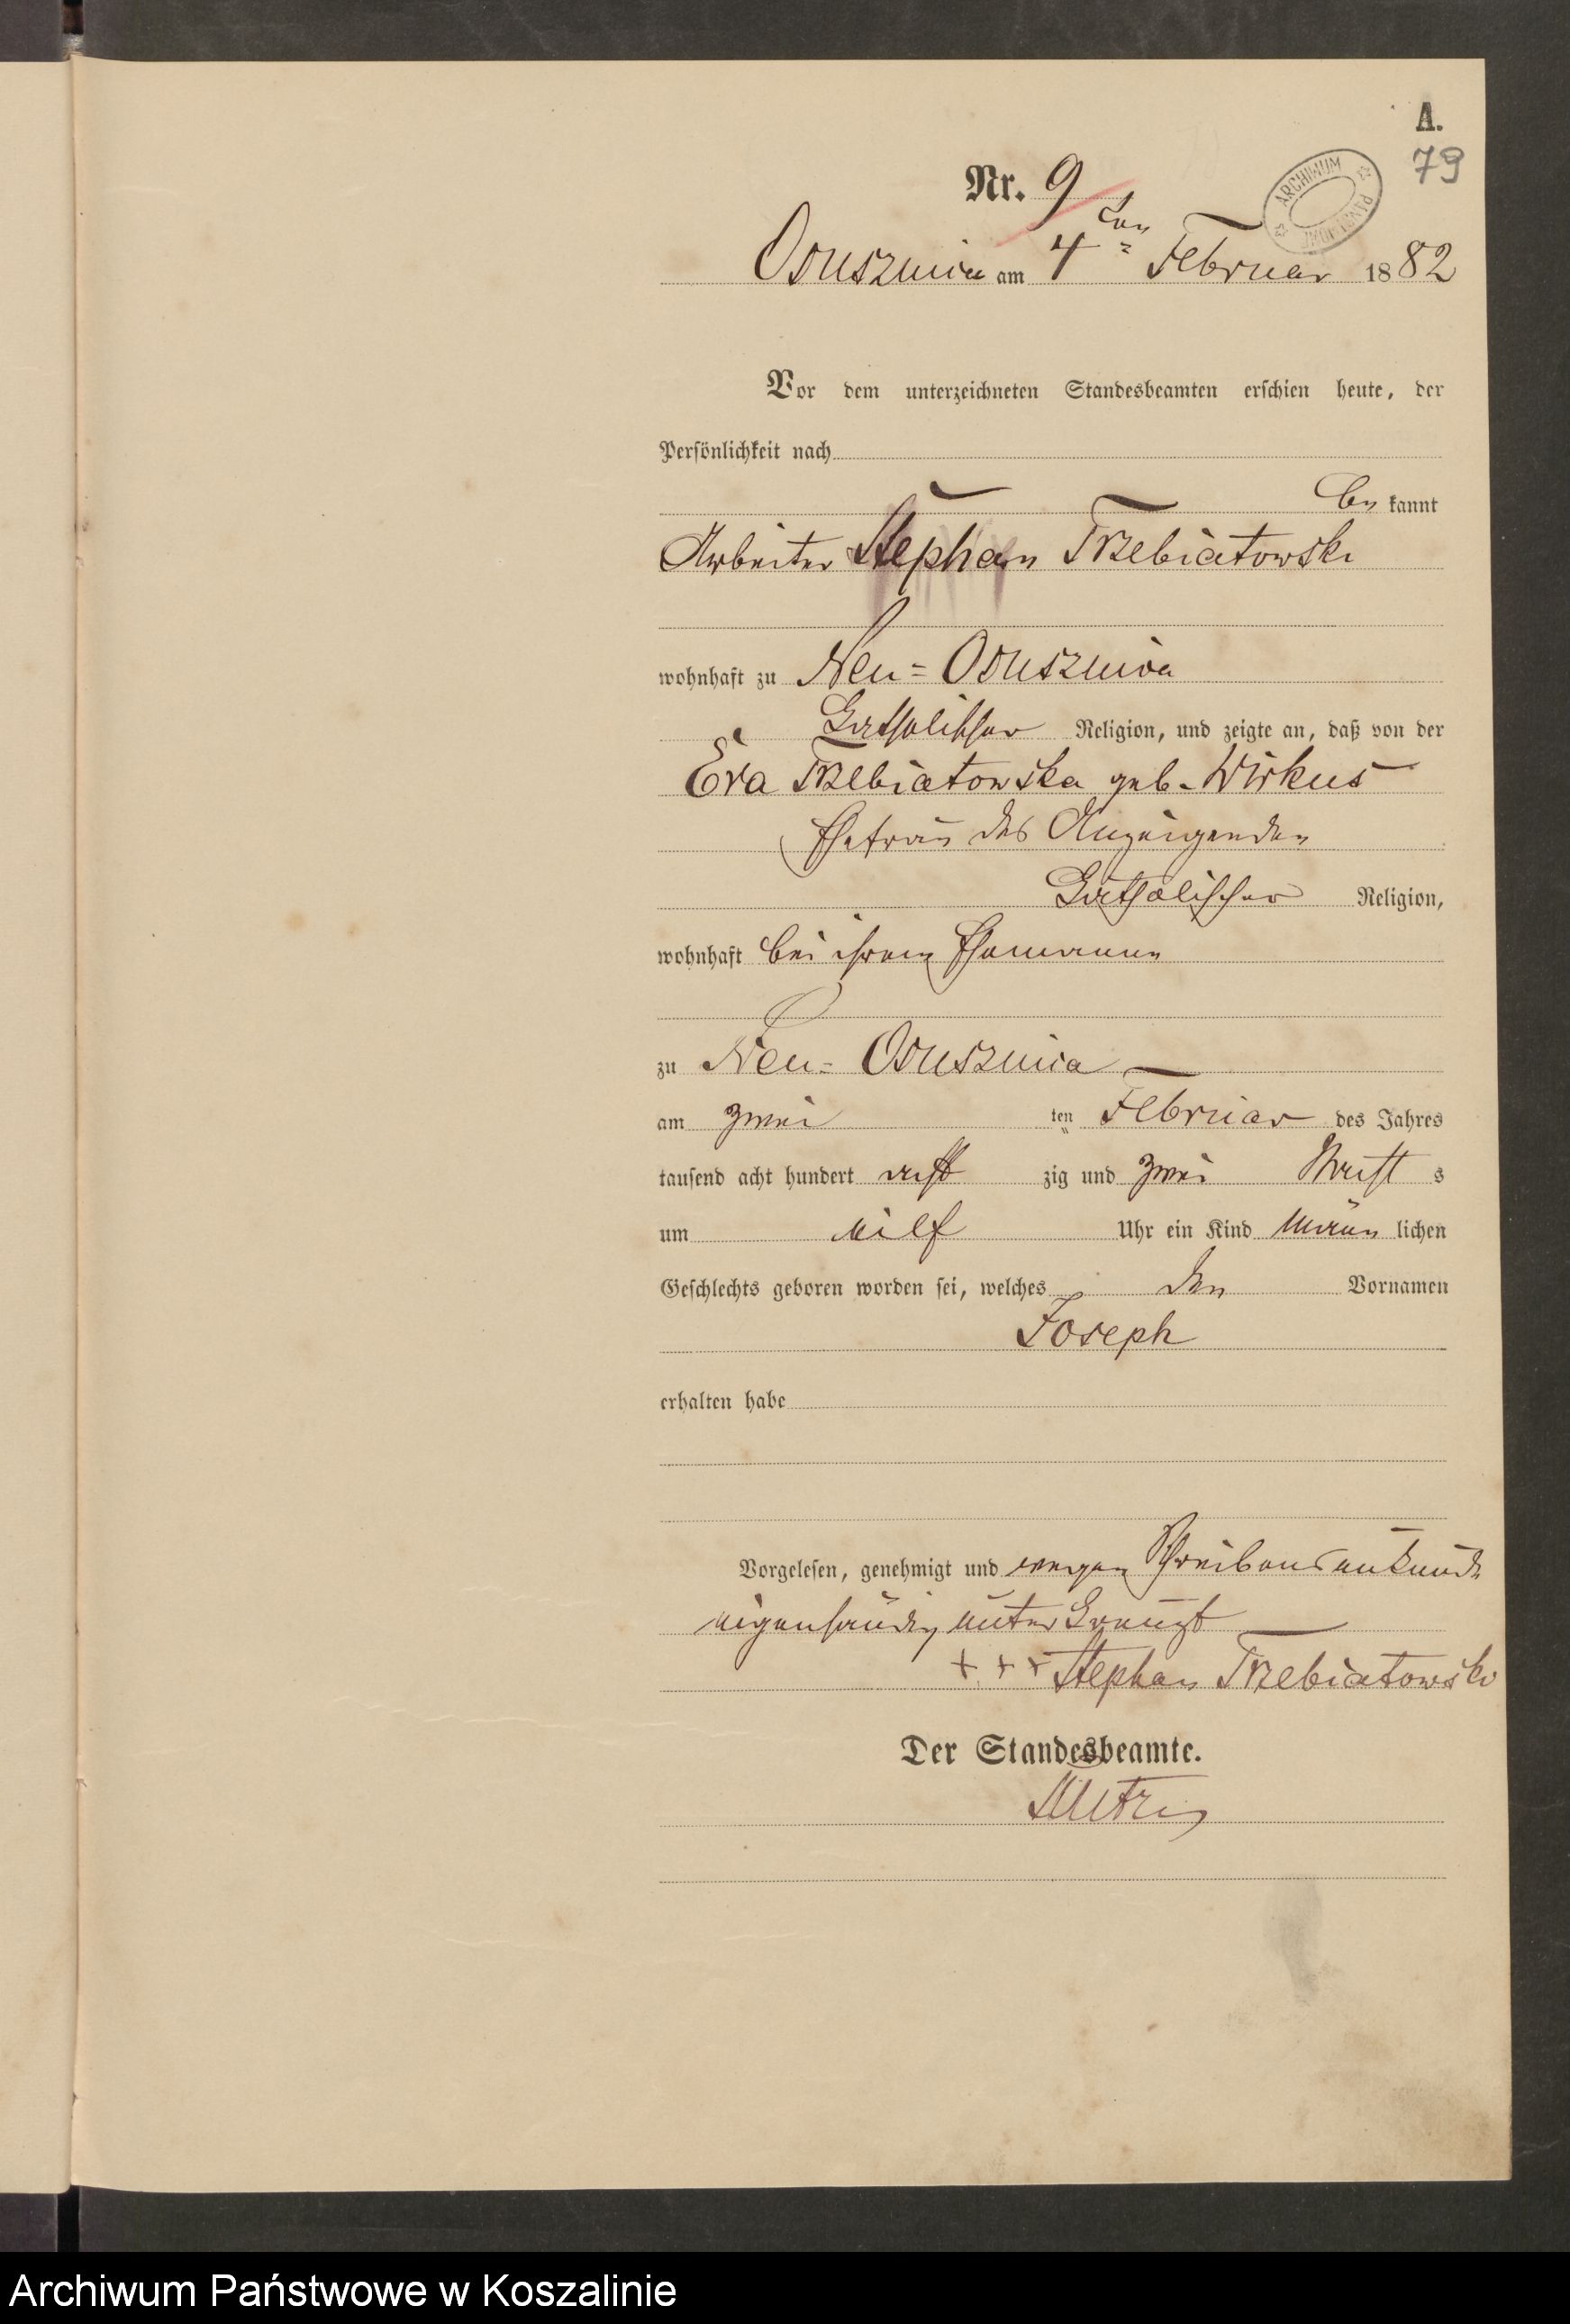 A.
79
Nr. 9
ARCHIWUM PAŃSTWOWE
Osusznica am 4ten Februar 1882
Vor dem unterzeichneten Standesbeamten erschien heute, der
Persönlichkeit nach
be kannt
Arbeiter Stephan Trzebiatowski
wohnhaft zu Neu=Osusznica
katholischer Religion, und zeigte an, daß von der
Eva Trzebiatowska geb. Wirkus
Ehefrau des Anzeigenden
katholischer Religion,
wohnhaft bei ihrem Ehemanne
zu Neu=Osusznica
am zwei ten Februar des Jahres
tausend acht hundert acht zig und zwei Nachts
um eilf Uhr ein Kind männlichen
Geschlechts geboren worden sei, welches den Vornamen
Joseph
erhalten habe
Vorgelesen, genehmigt und wegen Schreibensunkunde
eigenhändig unterkreuzt
+ + + Stephan Trzebiatowski
Der Standesbeamte.
Archiwum Państwowe w Koszalinie